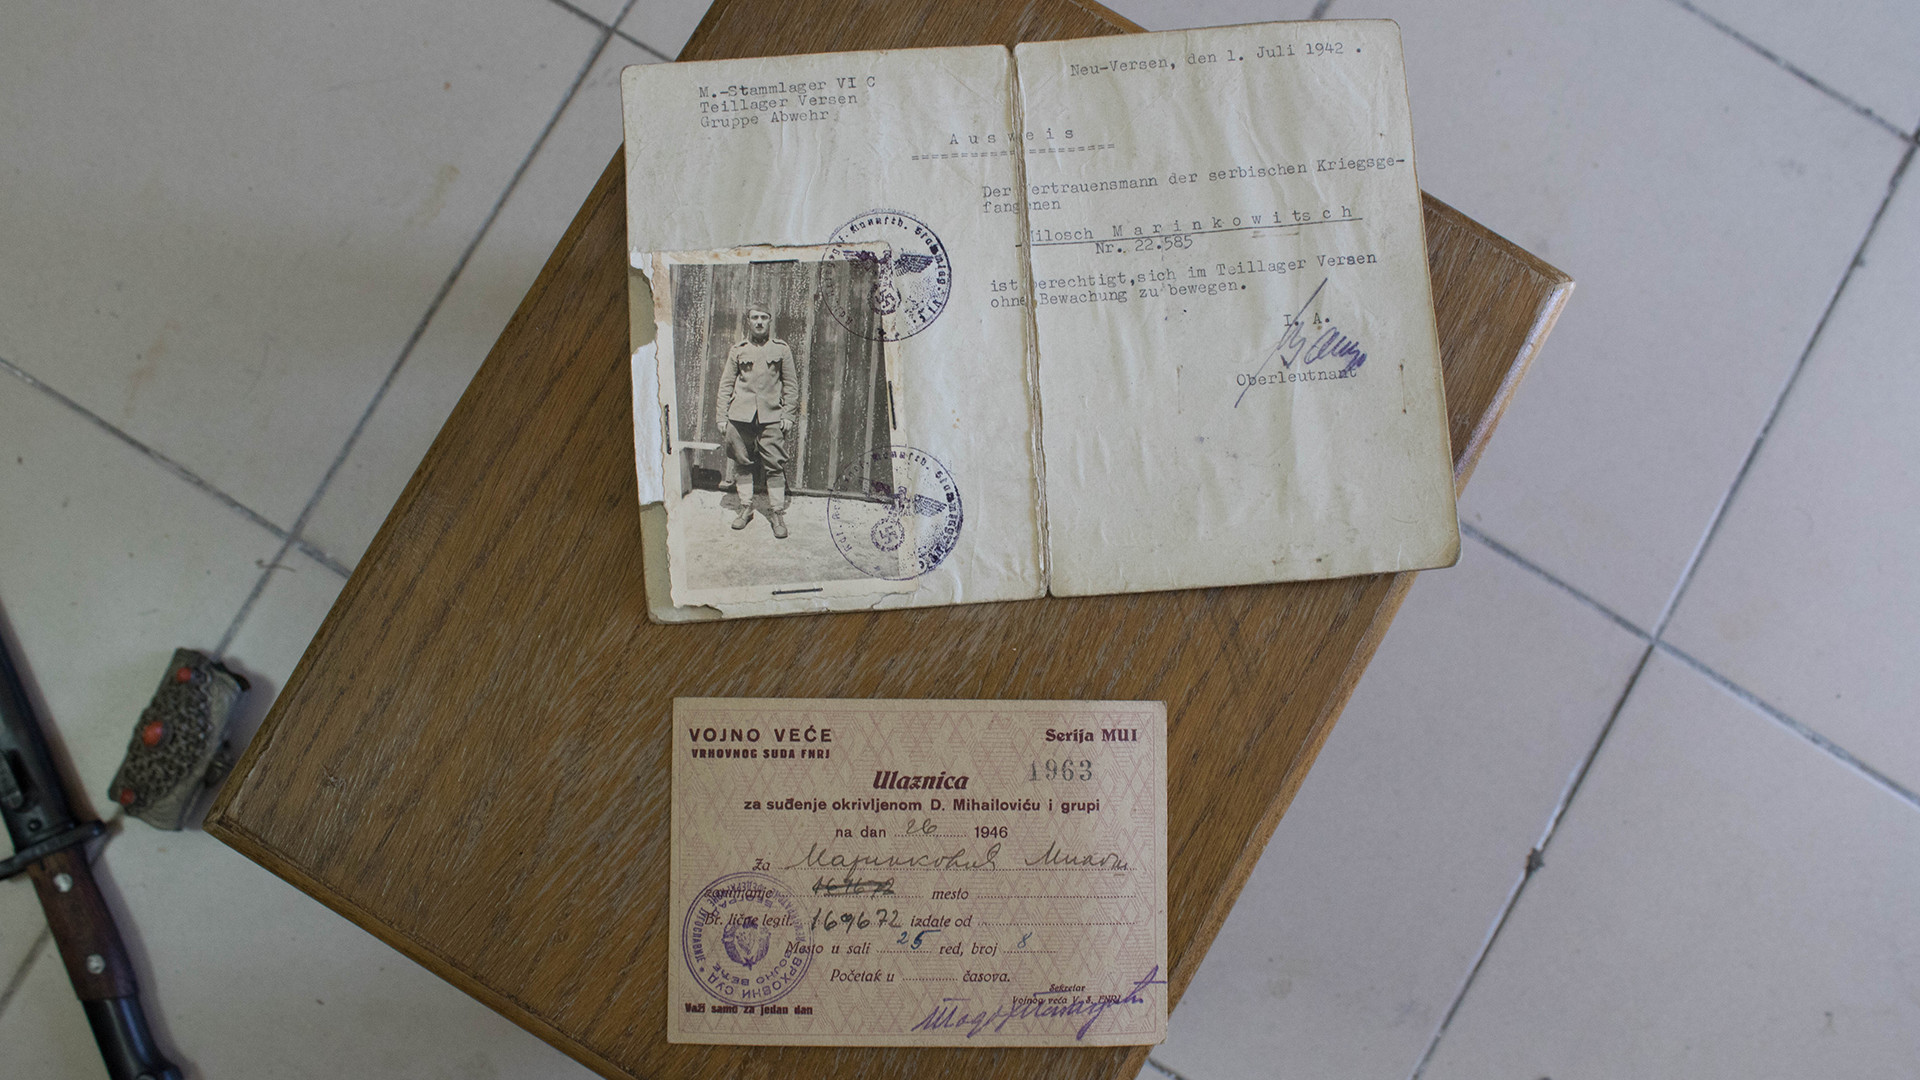 M.-Stammlager VI C
Teillager Versen
Gruppe Abwehr
Neu-Versen, den 1. Juli 1942 .
A u s w e i s
Der Vertrauensmann der serbischen Kriegsge-
fangenen
Milosch M a r i n k o w i t s c h
Nr. 22.585
ist berechtigt,sich im Teillager Versen
ohne Bewachung zu bewegen.
I. A.
Oberleutnant
VOJNO VEĆE
VRHOVNOG SUDA FNRJ
Serija MUI
1963
Ulaznica
za suđenje okrivljenom D. Mihailoviću i grupi
na dan 26 1946
Za Маринковић Милош
zanimanje 169672 mesto
Br. lične legit. 169672 izdate od
Mesto u sali 25 red, broj 8
Početak u časova.
Sekretar
Vojnog veća V. S. FNRJ
Važi samo za jedan dan
ВРХОВНИ СУД
ВОЈНО ВЕЋЕ